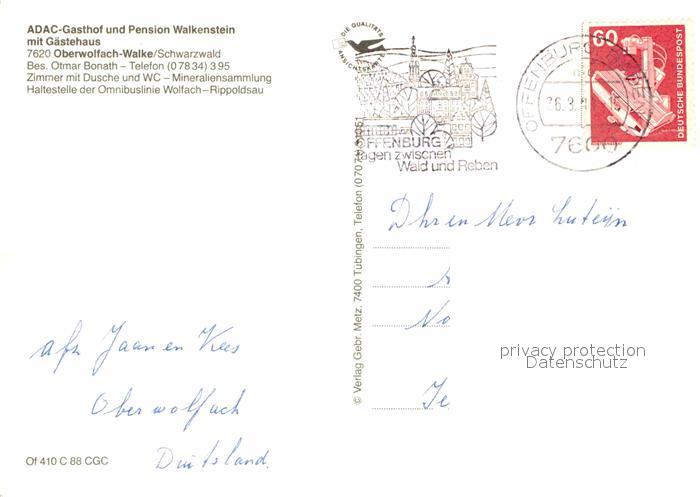 ADAC-Gasthof und Pension Walkenstein
mit Gästehaus
7620 Oberwolfach-Walke/Schwarzwald
Bes. Otmar Bonath – Telefon (0 78 34) 3 95
Zimmer mit Dusche und WC – Mineraliensammlung
Haltestelle der Omnibuslinie Wolfach–Rippoldsau
DIE QUALITÄTS
ANSICHTSKARTE
OFFENBURG
tagen zwischen
Wald und Reben
OFFENBURG
7600
60
DEUTSCHE BUNDESPOST
© Verlag Gebr. Metz, 7400 Tübingen, Telefon
Dhr en Mevr Luteijn
No
Te
afz Jaan en Kees
Oberwolfach
Duitsland.
privacy protection
Datenschutz
Of 410 C 88 CGC